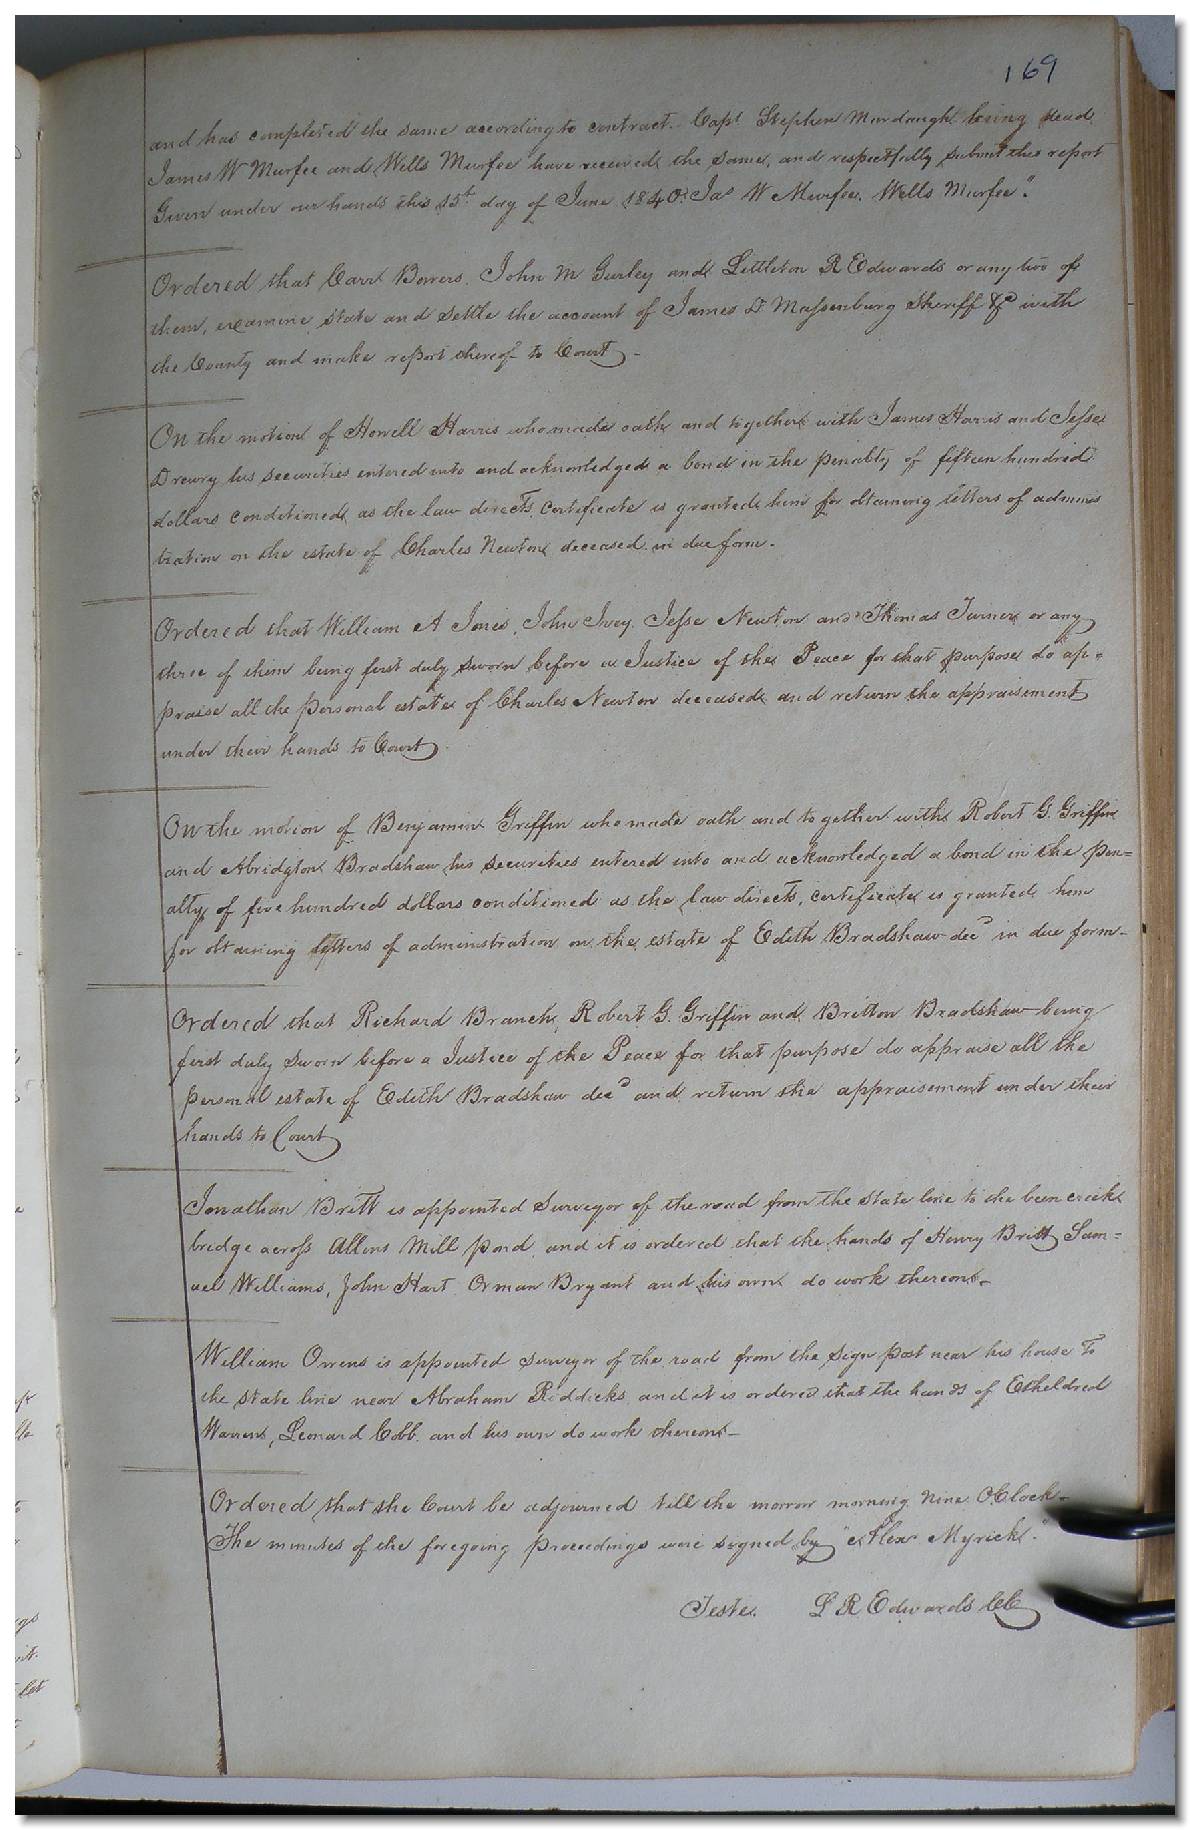 169
and has completed the same according to contract. Capt Stephen Murdaugh being dead
James W Murfee and Wells Murfee have received the same, and respectfully submit this report
Given under our hands this 15t day of June 1840. Jas W Murfee. Wells Murfee".
Ordered that Carr Bowers, John M Gurley and Littleton R Edwards or any two of
them, examine State and Settle the account of James D Massenburg Sheriff &c with
the County and make report thereof to Court -
On the motion of Howell Harris who made oath and together with James Harris and Jesse
Drewry his securities entered into and acknowledged a bond in the penalty of fifteen hundred
dollars conditioned as the law directs, certificate is granted him for obtaining letters of adminis
tration on the estate of Charles Newton deceased in due form.
Ordered that William A Jones, John Ivey, Jesse Newton and Thomas Turner or any
three of them being first duly sworn before a Justice of the Peace for that purpose do ap=
praise all the personal estate of Charles Newton deceased and return the appraisement
under their hands to Court.
On the motion of Benjamin Griffin who made oath and together with Robert G. Griffin
and Abridgton Bradshaw his securities entered into and acknowledged a bond in the pen=
alty of five hundred dollars conditioned as the law directs, certificate is granted him
for obtaining letters of administration on the estate of Edith Bradshaw decd in due form -
Ordered that Richard Branch, Robert G. Griffin and Britton Bradshaw being
first duly sworn before a Justice of the Peace for that purpose do appraise all the
personal estate of Edith Bradshaw decd and return the appraisement under their
hands to Court
Jonathan Britt is appointed Surveyor of the road from the state line to the creek
bridge across Allens Mill pond, and it is ordered that the hands of Henry Britt, Sam=
uel Williams, John Hart Orman Bryant and his own do work thereon -
William Owens is appointed surveyor of the road from the sign post near his house to
the state line near Abraham Riddicks, and it is ordered that the hands of Etheldred
Warren, Leonard Cobb, and his own do work thereon -
Ordered that the Court be adjourned till the morrow morning nine O.Clock -
The minutes of the foregoing proceedings were signed by "Alexr Myrick."
Teste. L R Edwards CC